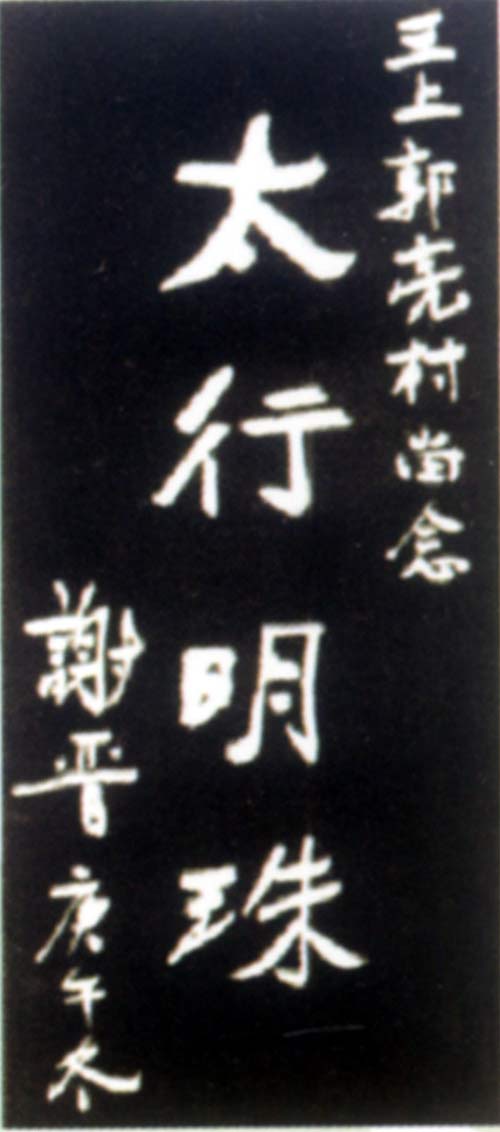 三上郭亮村留念
太行明珠
謝晋 庚午冬